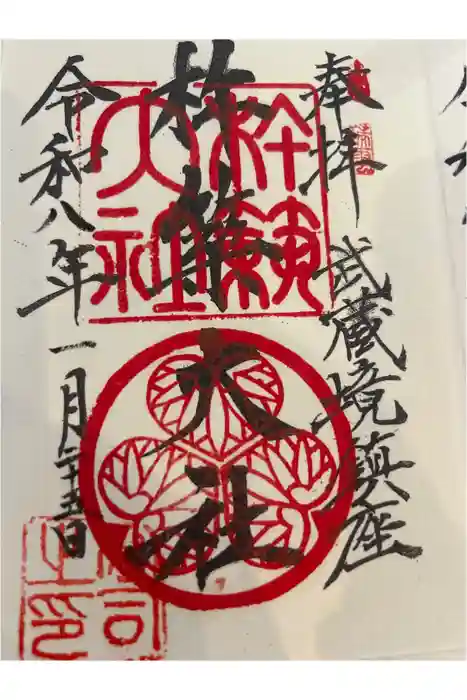 奉拝
武蔵境鎮座
杵築大社
令和八年
一月二十五日
杵築
大社